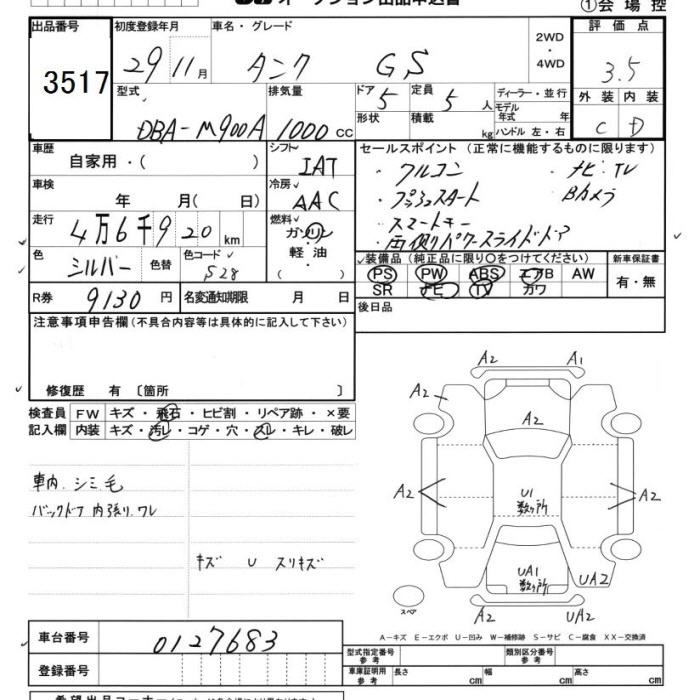 オークション出品申込書
①会場控
出品番号
3517
初度登録年月
29 11月
車名・グレード
タンク GS
2WD
・
4WD
評価点
3.5
外装 内装
C D
型式
DBA-M900A
排気量
1000 cc
ドア
5
定員
5 人
形状
積載
kg
ディーラー・並行
モデル年式 年
ハンドル 左・右
車歴
自家用・( )
シフト
IAT
車検
年 月( 日)
冷房
AAC
走行
4万6千920 km
燃料
ガソリン
軽油
( )
色
シルバー
色替
色コード
S28
R券
9130 円
名変通知期限
月 日
セールスポイント(正常に機能するものに限ります)
・フルコン ・ナビ・TV
・プッシュスタート Bカメラ
・スマートキー
・両側パワースライドドア
装備品(純正品に限り○をつけてください)
PS PW ABS エアB AW
SR ナビ TV カワ
新車保証書
有・無
後日品
注意事項申告欄(不具合内容等は具体的に記入して下さい)
修復歴 有 〔箇所 〕
検査員記入欄
FW キズ・飛石・ヒビ割・リペア跡・×要
内装 キズ・汚レ・コゲ・穴・スレ・キレ・破レ
車内 シミ 毛
バックドア 内張り ワレ
キズ U スリキズ
A2 A1
A2
A2
A2
A2
U1
数ヶ所
UA1
数ヶ所
UA2
スペア
A2 UA2
A-キズ E-エクボ U-凹み W-補修跡 S-サビ C-腐食 XX-交換済
車台番号
0127683
登録番号
型式指定番号
参考
類別区分番号
参考
車庫証明用
参考
長さ cm
幅 cm
高さ cm
希望出品コーナー